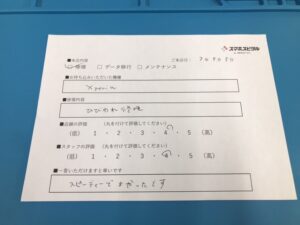 スマホスピタル
■本日内容
修理 □ データ移行 □ メンテナンス
■お持ち込みいただいた機種
Xperia
■修理内容
ひびわれ修理
■店舗の評価 (丸を付けて評価してください)
(低) 1 ・ 2 ・ 3 ・ 4 ・ 5 (高)
■スタッフの評価 (丸を付けて評価してください)
(低) 1 ・ 2 ・ 3 ・ 4 ・ 5 (高)
■一言いただけますと幸いです
スピーディーでよかったです